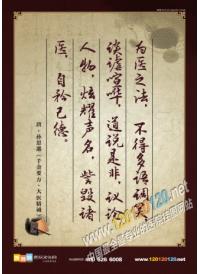 为医之法，不得多语调笑，
谈谑喧哗，道说是非，议论
人物，炫耀声名，訾毁诸
医，自矜己德。
唐·孙思邈《千金要方·大医精诚》
www.120120120.net
中国最全最专业的医院挂图网站
626 6008
www.120120120.net